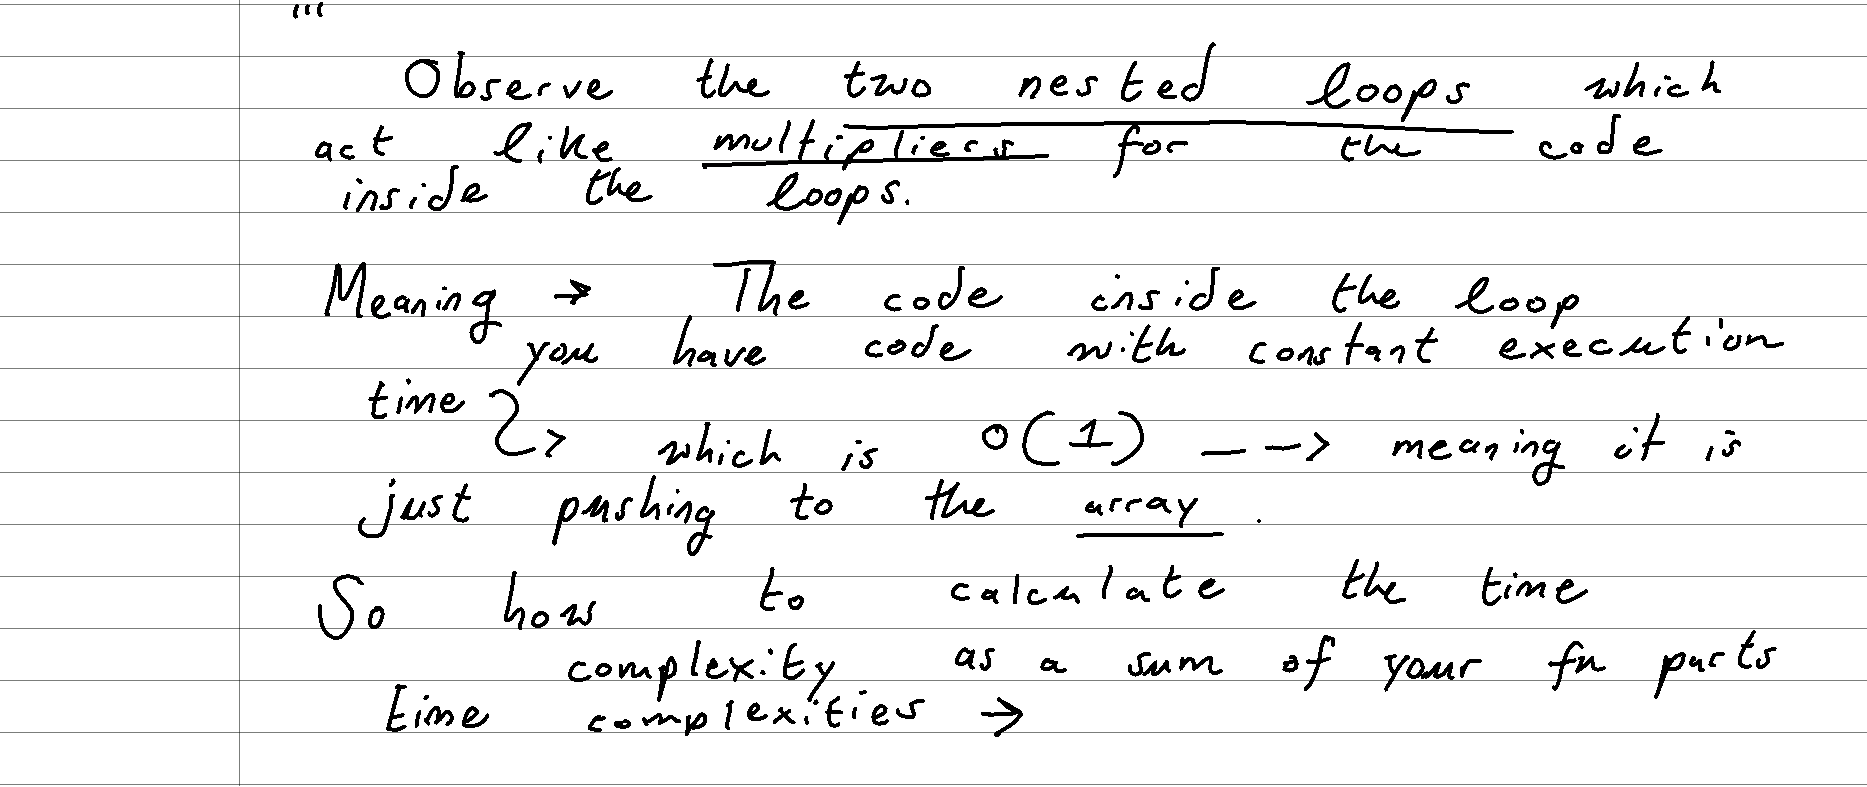 '''
Observe the two nested loops which
act like multipliers for the code
inside the loops.
Meaning → The code inside the loop
you have code with constant execution
time
↳ which is O(1) ---> meaning it is
just pushing to the array.
So how to calculate the time
complexity as a sum of your fn parts
time complexities →